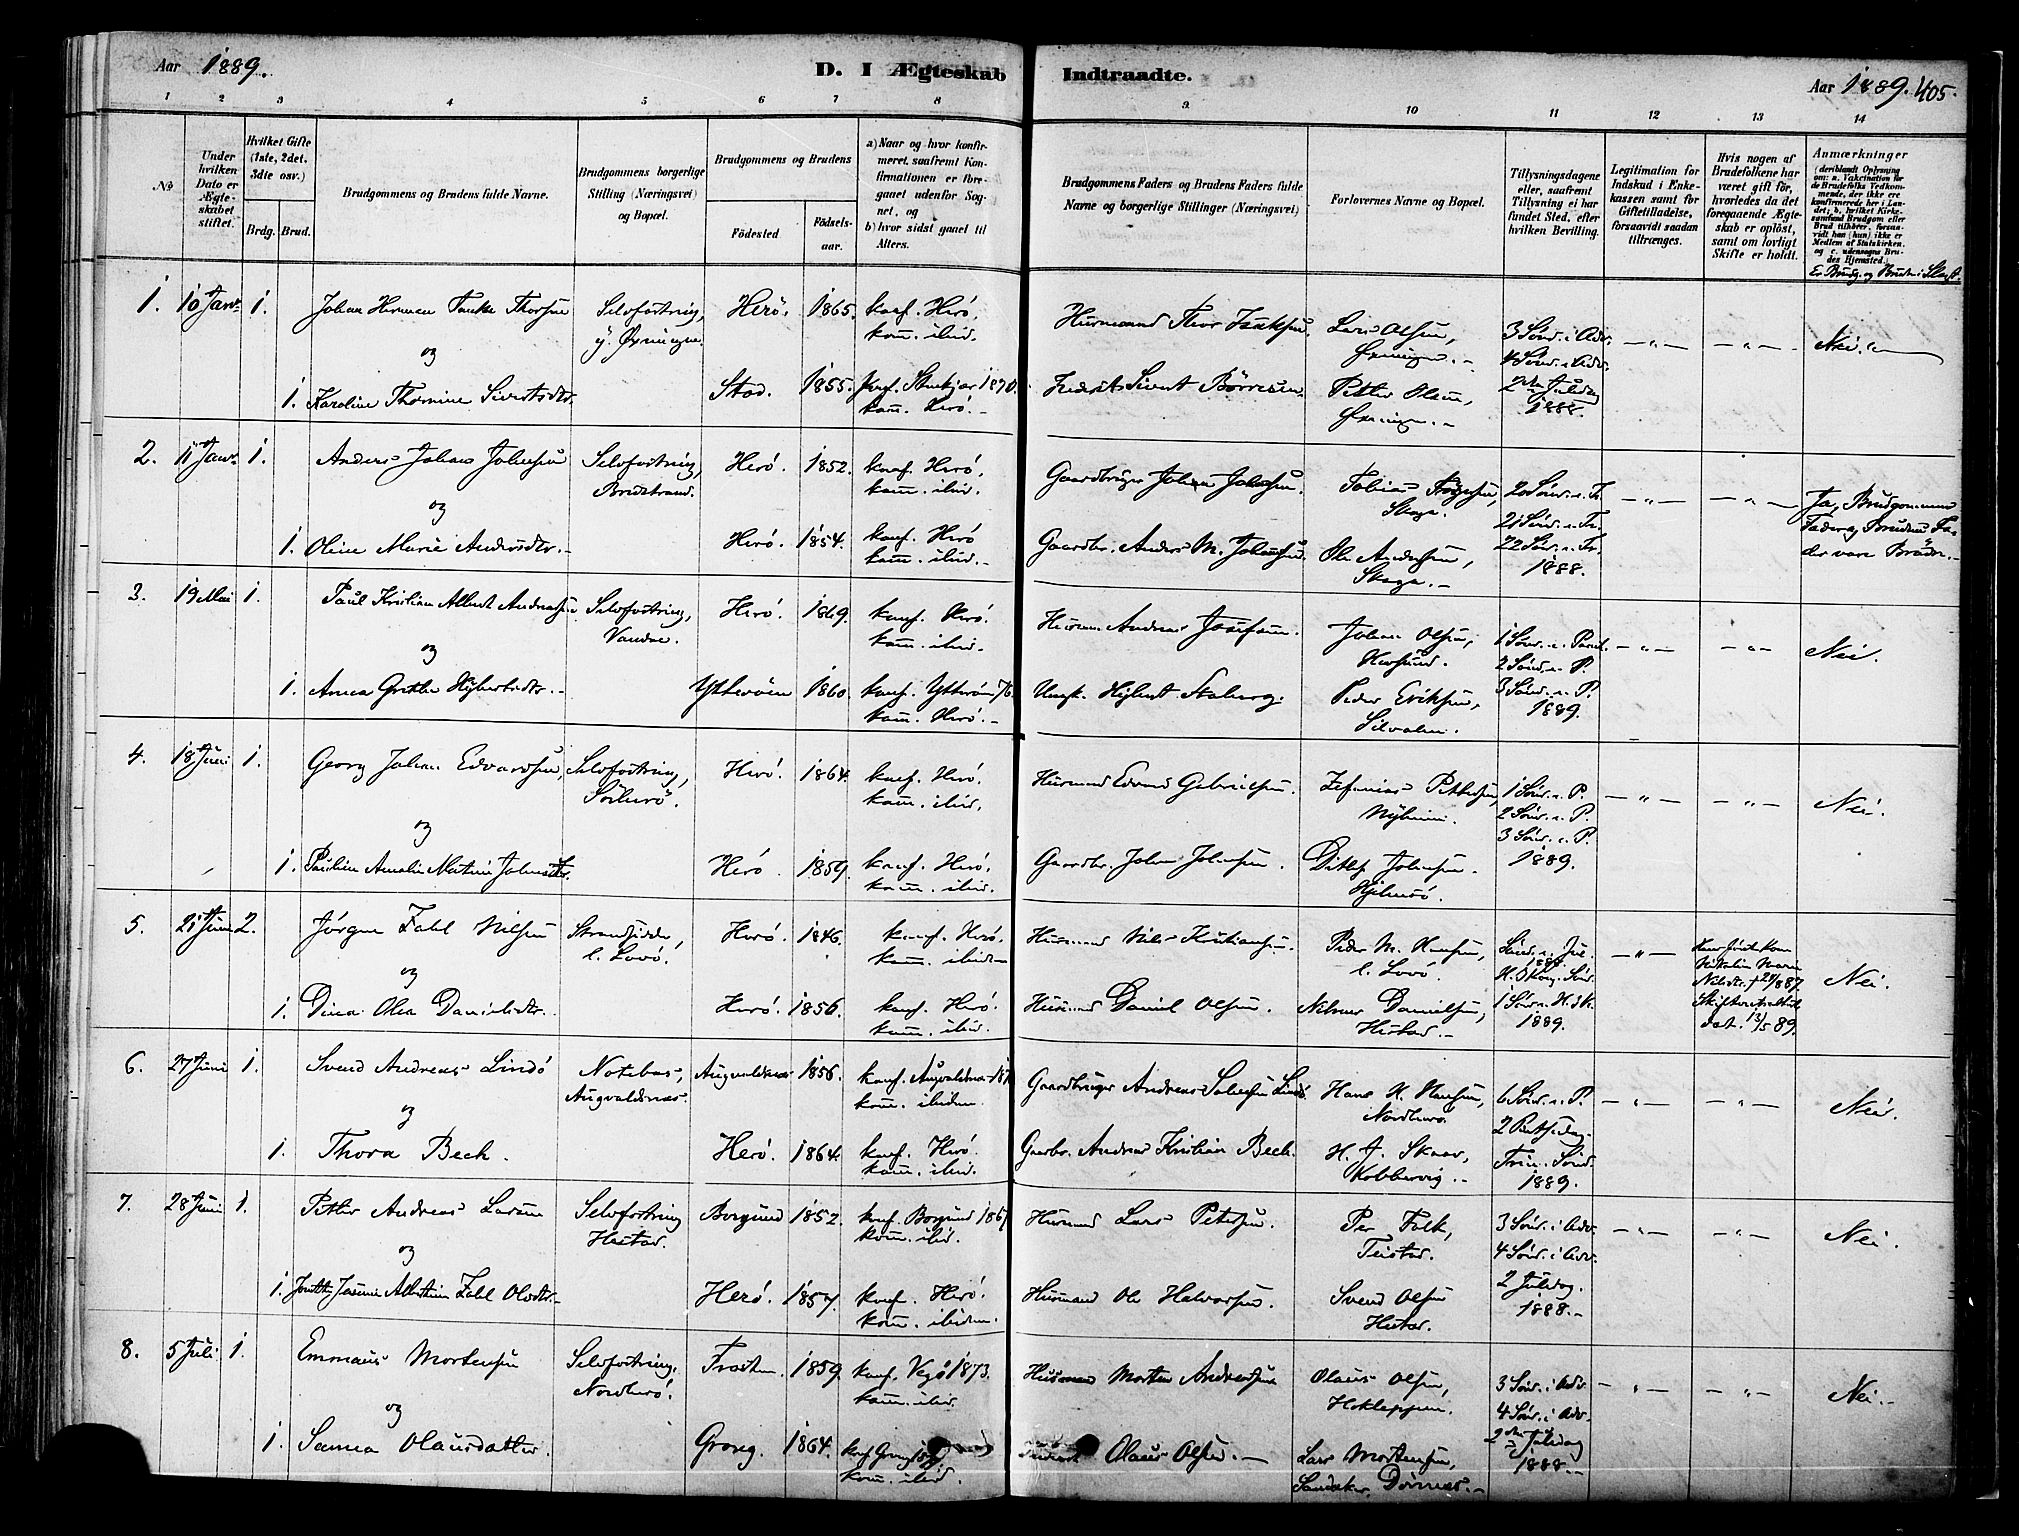 Aar 1889.
D. I Ægteskab Indtraadte.
Aar 1889. 405.
1 2 3 4 5 6 7 8 9 10 11 12 13 14
№
Under hvilken Dato er Ægteskabet stiftet.
Hvilket Gifte (1ste, 2det, 3die osv.)
Brdg. Brud.
Brudgommens og Brudens fulde Navne.
Brudgommens borgerlige Stilling (Næringsvei) og Bopæl.
Brudgommens og Brudens
Fødested
Fødselsaar.
a) Naar og hvor konfirmeret, saafremt Konfirmationen er foregaaet udenfor Sognet, og
b) hvor sidst gaaet til Alters.
Brudgommens Faders og Brudens Faders fulde Navne og borgerlige Stillinger (Næringsvei)
Forlovernes Navne og Bopæl.
Tillysningsdagene eller, saafremt Tillysning ei har fundet Sted, efter hvilken Bevilling.
Legitimation for Indskud i Enkekassen samt for Giftetilladelse, forsaavidt saadan tiltrænges.
Hvis nogen af Brudefolkene har været gift før, hvorledes da det foregaaende Ægteskab er opløst, samt om lovligt Skifte er holdt.
Anmærkninger
(deriblandt Oplysning om: a. Vakcination for de Brudefolks Vedkommende, der ikke ere konfirmerede her i Landet; b. hvilket Kirkesamfund Brudgom eller Brud tilhører, forsaavidt han (hun) ikke er Medlem af Statskirken, og c. udensogns Brudes Hjemsted.)
Er Brudg. og Brud i Slægt.
1. 10 Janr. 1. Johan Herman Tanke Thorsen Selvfostring, y. Øxningen. Herö. 1865. konf. Herö. kom. ibid. Husmand Thor Isaksen. Lars Olsen, Øxningen. 3 Sönd. i Adv. 4 Sönd. i Adv. 2den Juledag 1888. Nei.
og
1. Karoline Thomine Sivertsdtr. Stod. 1855. konf. Stenkjær 1870. kom. Herö. Sivert Börresen. Petter Olsen, Øxningen.
2. 11 Janr. 1. Anders Johan Johnsen Selvfostring, Bredstrand. Herö. 1852. konf. Herö. kom. ibid. Gaardbruger Johan Johnsen. Tobias Skaga. 20 Sönd. e. Tr. 21 Sönd. e. Tr. 22 Sön. e. Tr. 1888. Ja, Brudgommens Fader og Brudens Fader vare Brödre.
og
1. Oline Marie Andersdtr. Herö. 1854. konf. Herö kom. ibid. Gaardbr. Anders M. Johnsen. Ole Andersen, Skaga.
3. 19 Mai 1. Paul Kristian Albert Andreassen Selvfostring, Vandve. Herö. 1869. konf. Herö. kom. ibid. Husm. Andreas Josefsen. Johan Olsen, 1 Sönd. e. Paask. 2 Sönd. e. P. 3 Sönd. e. P. 1889. Nei.
og
1. Anna Grethe Hybertsdtr. Ytterøen 1860. konf. Ytterøen 76. kom. Herö. Ungk. Hybert Staberg. Peder Eriksen, Silvalen.
4. 18 Juni 1. Georg Johan Edvardsen, Selvfostring, Sörherö. Herö. 1864. konf. Herö. kom. ibid. Husmand Edvard Gabrielsen. Zefanias Pettersen, 1 Sönd. e. P. 2 Sönd. e. P. 3 Sönd. e. P. 1889. Nei.
og
1. Pauline Amalie Martine Johnsdtr. Herö 1859. konf. Herö. kom. ibid. Gaardbr. Johan Johnsen. Ditlef Johnsen. Hjelmsö.
5. 21 Juni 2. Jörgen Zahl Nilsen Strandsidder, l. Lovö. Herö. 1846. konf. Herö. kom. ibid. Husmand Nils Kristiansen. Peder M. Hansen, l. Lovö. Sönd. e. Jul. H. 3 Kong. Sönd. 1 Sön e. H. 3 K. 1889. Hans förste Kone Nikoline Marie Nilsdtr. Skifteretsattest dat. 13/5 89. Nei.
og
1. Dina Olea Danielsdtr. Herö. 1856. konf. Herö. kom. ibid. Husmand Daniel Olsen. Nilmer Danielsen, Hestad.
6. 27 Juni 1. Svend Andreas Lindö Notebas, Augvaldsnæs. Augvaldsnæs 1856. konf. Augvaldsnæs kom. ibidem. Gaardbruger Andreas Salvesen Lindö Hans H. Hansen, Nordherö. 6 Sönd. e. P. 2 Pintsedag. Trin. Sönd. 1889. Nei.
og
1. Thora Bech. Herö. 1864. konf. Herö. kom. ibid. Gaardbr. Andreas Kristian Bech. H. J. Skaar, Kobbervig.
7. 28 Juni 1. Petter Andreas Larsen Selvfostring Hestad. Borgund 1852. konf. Borgund 1867. kom. ibid. Husmand Lars Petersen. Per Falk, Teistad. 3 Sönd. i Adv. 4 Sönd. i Adv. 2 Juledag. 1888. Nei.
og
1. Albertine Zahl Olsdtr. Herö. 1857. konf. Herö. kom. ibidem. Husmand Ole Halvorsen. Svend Olsen Hestad.
8. 5 Juli 1. Emmaus Mortensen Selvfostring, Nordherö. Frosten. 1859. konf. Vegö 1873. kom. ibid. Husmand Morten Andreassen Olaus Olsen, 3 Sönd. i Adv. 4 Sönd. i Adv. 2den Juledag 1888. Nei.
og
1. Sanna Olausdatter. Grong. 1864. konf. Grong kom. ibid. Olaus Olsen. Lars Mortensen, Sandaker, Dönnæs.